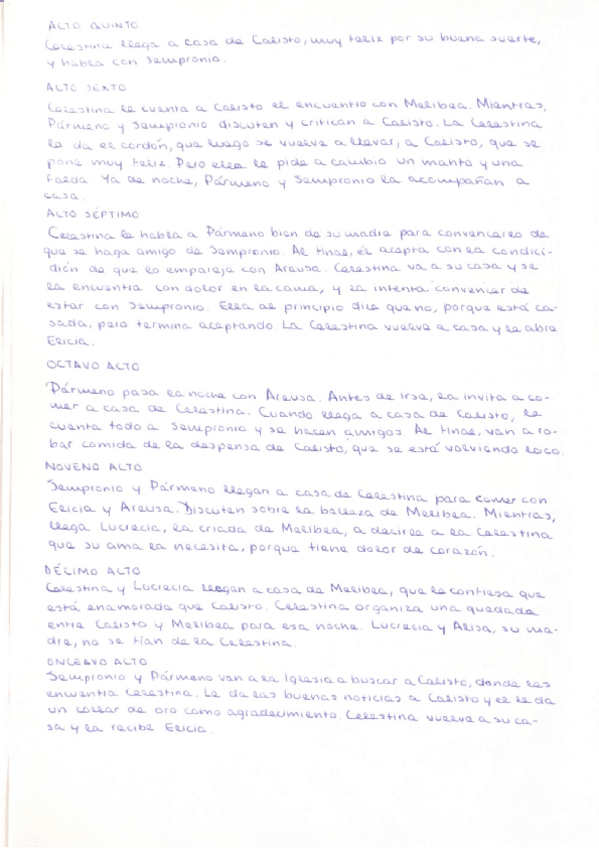 ALTO QUINTO
Celestina llega a casa de Calisto, muy feliz por su buena suerte,
y habla con Sempronio.
ALTO SEXTO
Celestina le cuenta a Calisto el encuentro con Melibea. Mientras,
Pármeno y Sempronio discuten y critican a Calisto. La Celestina
le da el cordón, que luego se vuelve a llevar, a Calisto, que se
pone muy feliz. Pero ella le pide a cambio un manto y una
falda. Ya de noche, Pármeno y Sempronio la acompañan a
casa.
ALTO SÉPTIMO
Celestina le habla a Pármeno bien de su madre para convencerlo de
que se haga amigo de Sempronio. Al final, él acepta con la condici-
dión de que lo empareje con Areusa. Celestina va a su casa y se
la encuentra con dolor en la cama, y la intenta convencer de
estar con Sempronio. Ella al principio dice que no, porque está ca-
sada, pero termina aceptando. La Celestina vuelve a casa y le abre
Elicia.
OCTAVO ALTO
Pármeno pasa la noche con Areusa. Antes de irse, la invita a co-
mer a casa de Celestina. Cuando llega a casa de Calisto, le
cuenta todo a Sempronio y se hacen amigos. Al final, van a ro-
bar comida de la despensa de Calisto, que se está volviendo loco.
NOVENO ALTO
Sempronio y Pármeno llegan a casa de Celestina para comer con
Elicia y Areusa. Discuten sobre la belleza de Melibea. Mientras,
llega Lucrecia, la criada de Melibea, a decirle a la Celestina
que su ama la necesita, porque tiene dolor de corazón.
DÉCIMO ALTO
Celestina y Lucrecia llegan a casa de Melibea, que le confiesa que
está enamorada que Calisto. Celestina organiza una quedada
entre Calisto y Melibea para esa noche. Lucrecia y Alisa, su ma-
dre, no se fían de la Celestina.
ONCEAVO ALTO
Sempronio y Pármeno van a la Iglesia a buscar a Calisto, donde los
encuentra Celestina. Le da las buenas noticias a Calisto y él le da
un collar de oro como agradecimiento. Celestina vuelve a su ca-
sa y la recibe Elicia.